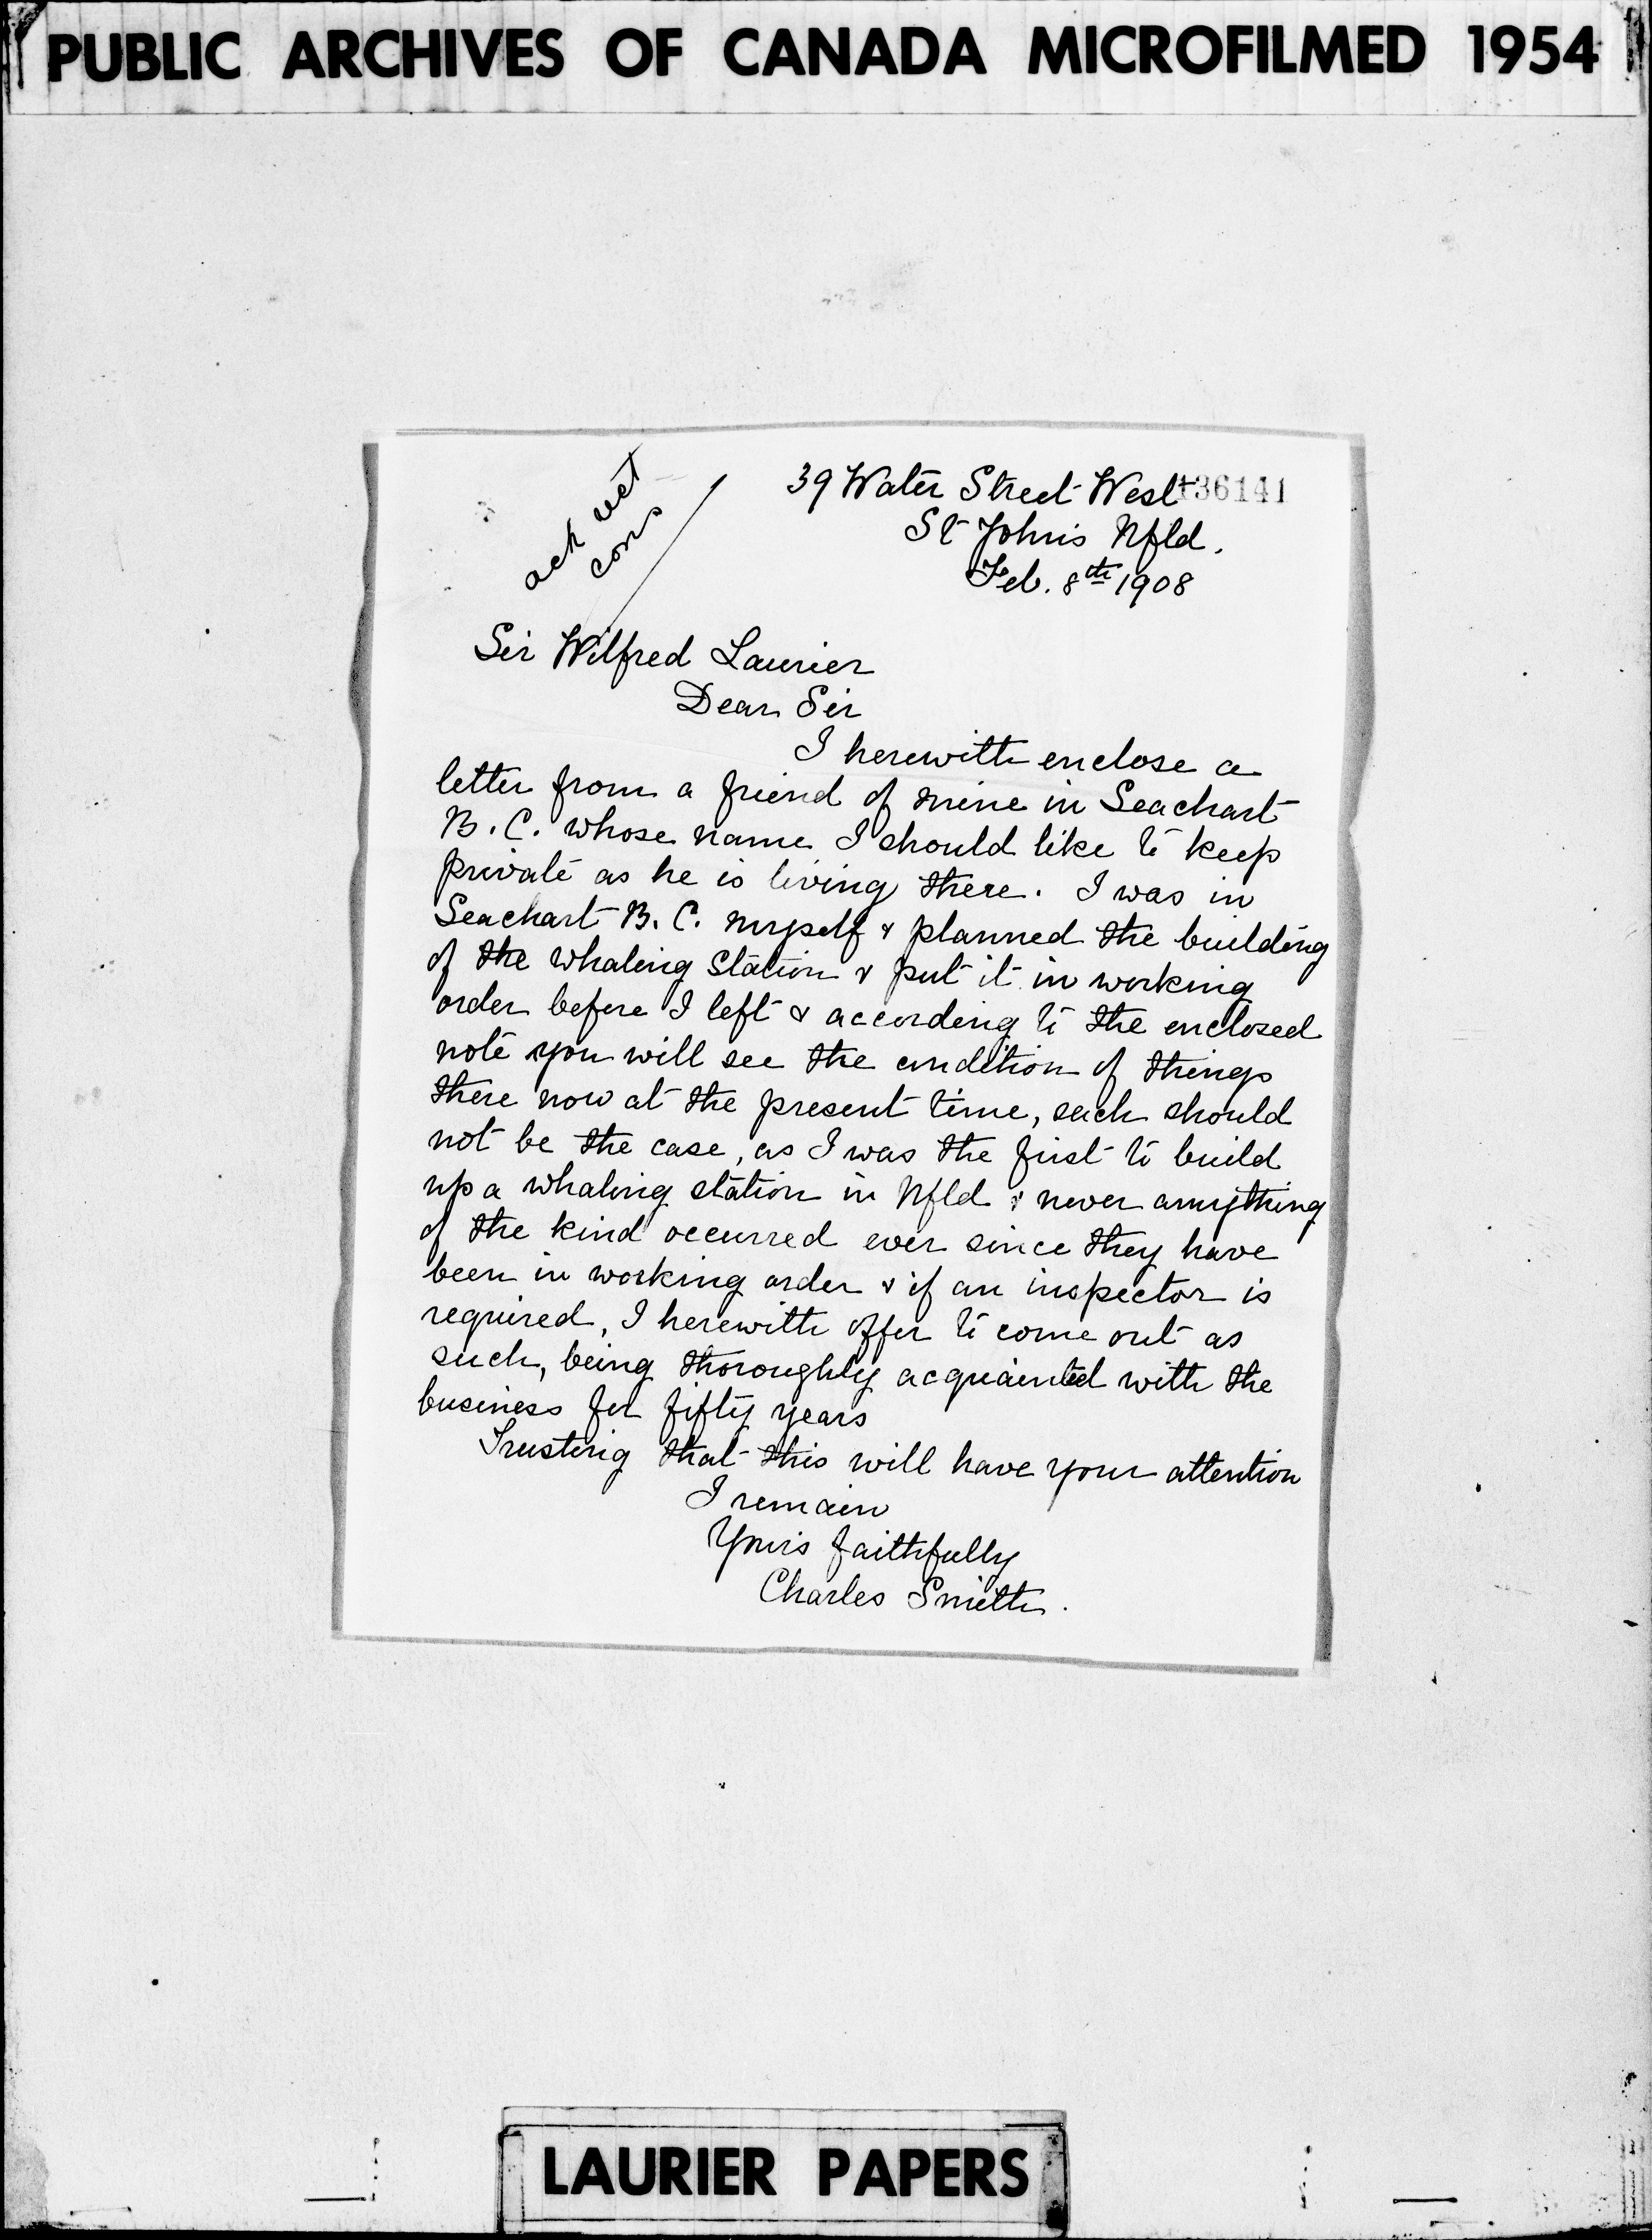 PUBLIC ARCHIVES OF CANADA MICROFILMED 1954
39 Water Street West 136141
St Johns Nfld.
Feb. 8th 1908
ack
Sir Wilfred Laurier
Dear Sir
I herewith enclose a
letter from a friend of mine in Seachart
B. C. whose name I should like to keep
private as he is living there. I was in
Seachart B. C. myself & planned the building
of the whaling station & put it in working
order before I left & according to the enclosed
note you will see the condition of things
there now at the present time, such should
not be the case, as I was the first to build
up a whaling station in Nfld & never anything
of the kind occurred ever since they have
been in working order & if an inspector is
required, I herewith offer to come out as
such, being thoroughly acquainted with the
business for fifty years
Trusting that this will have your attention
I remain
Yours faithfully
Charles Smith.
LAURIER PAPERS